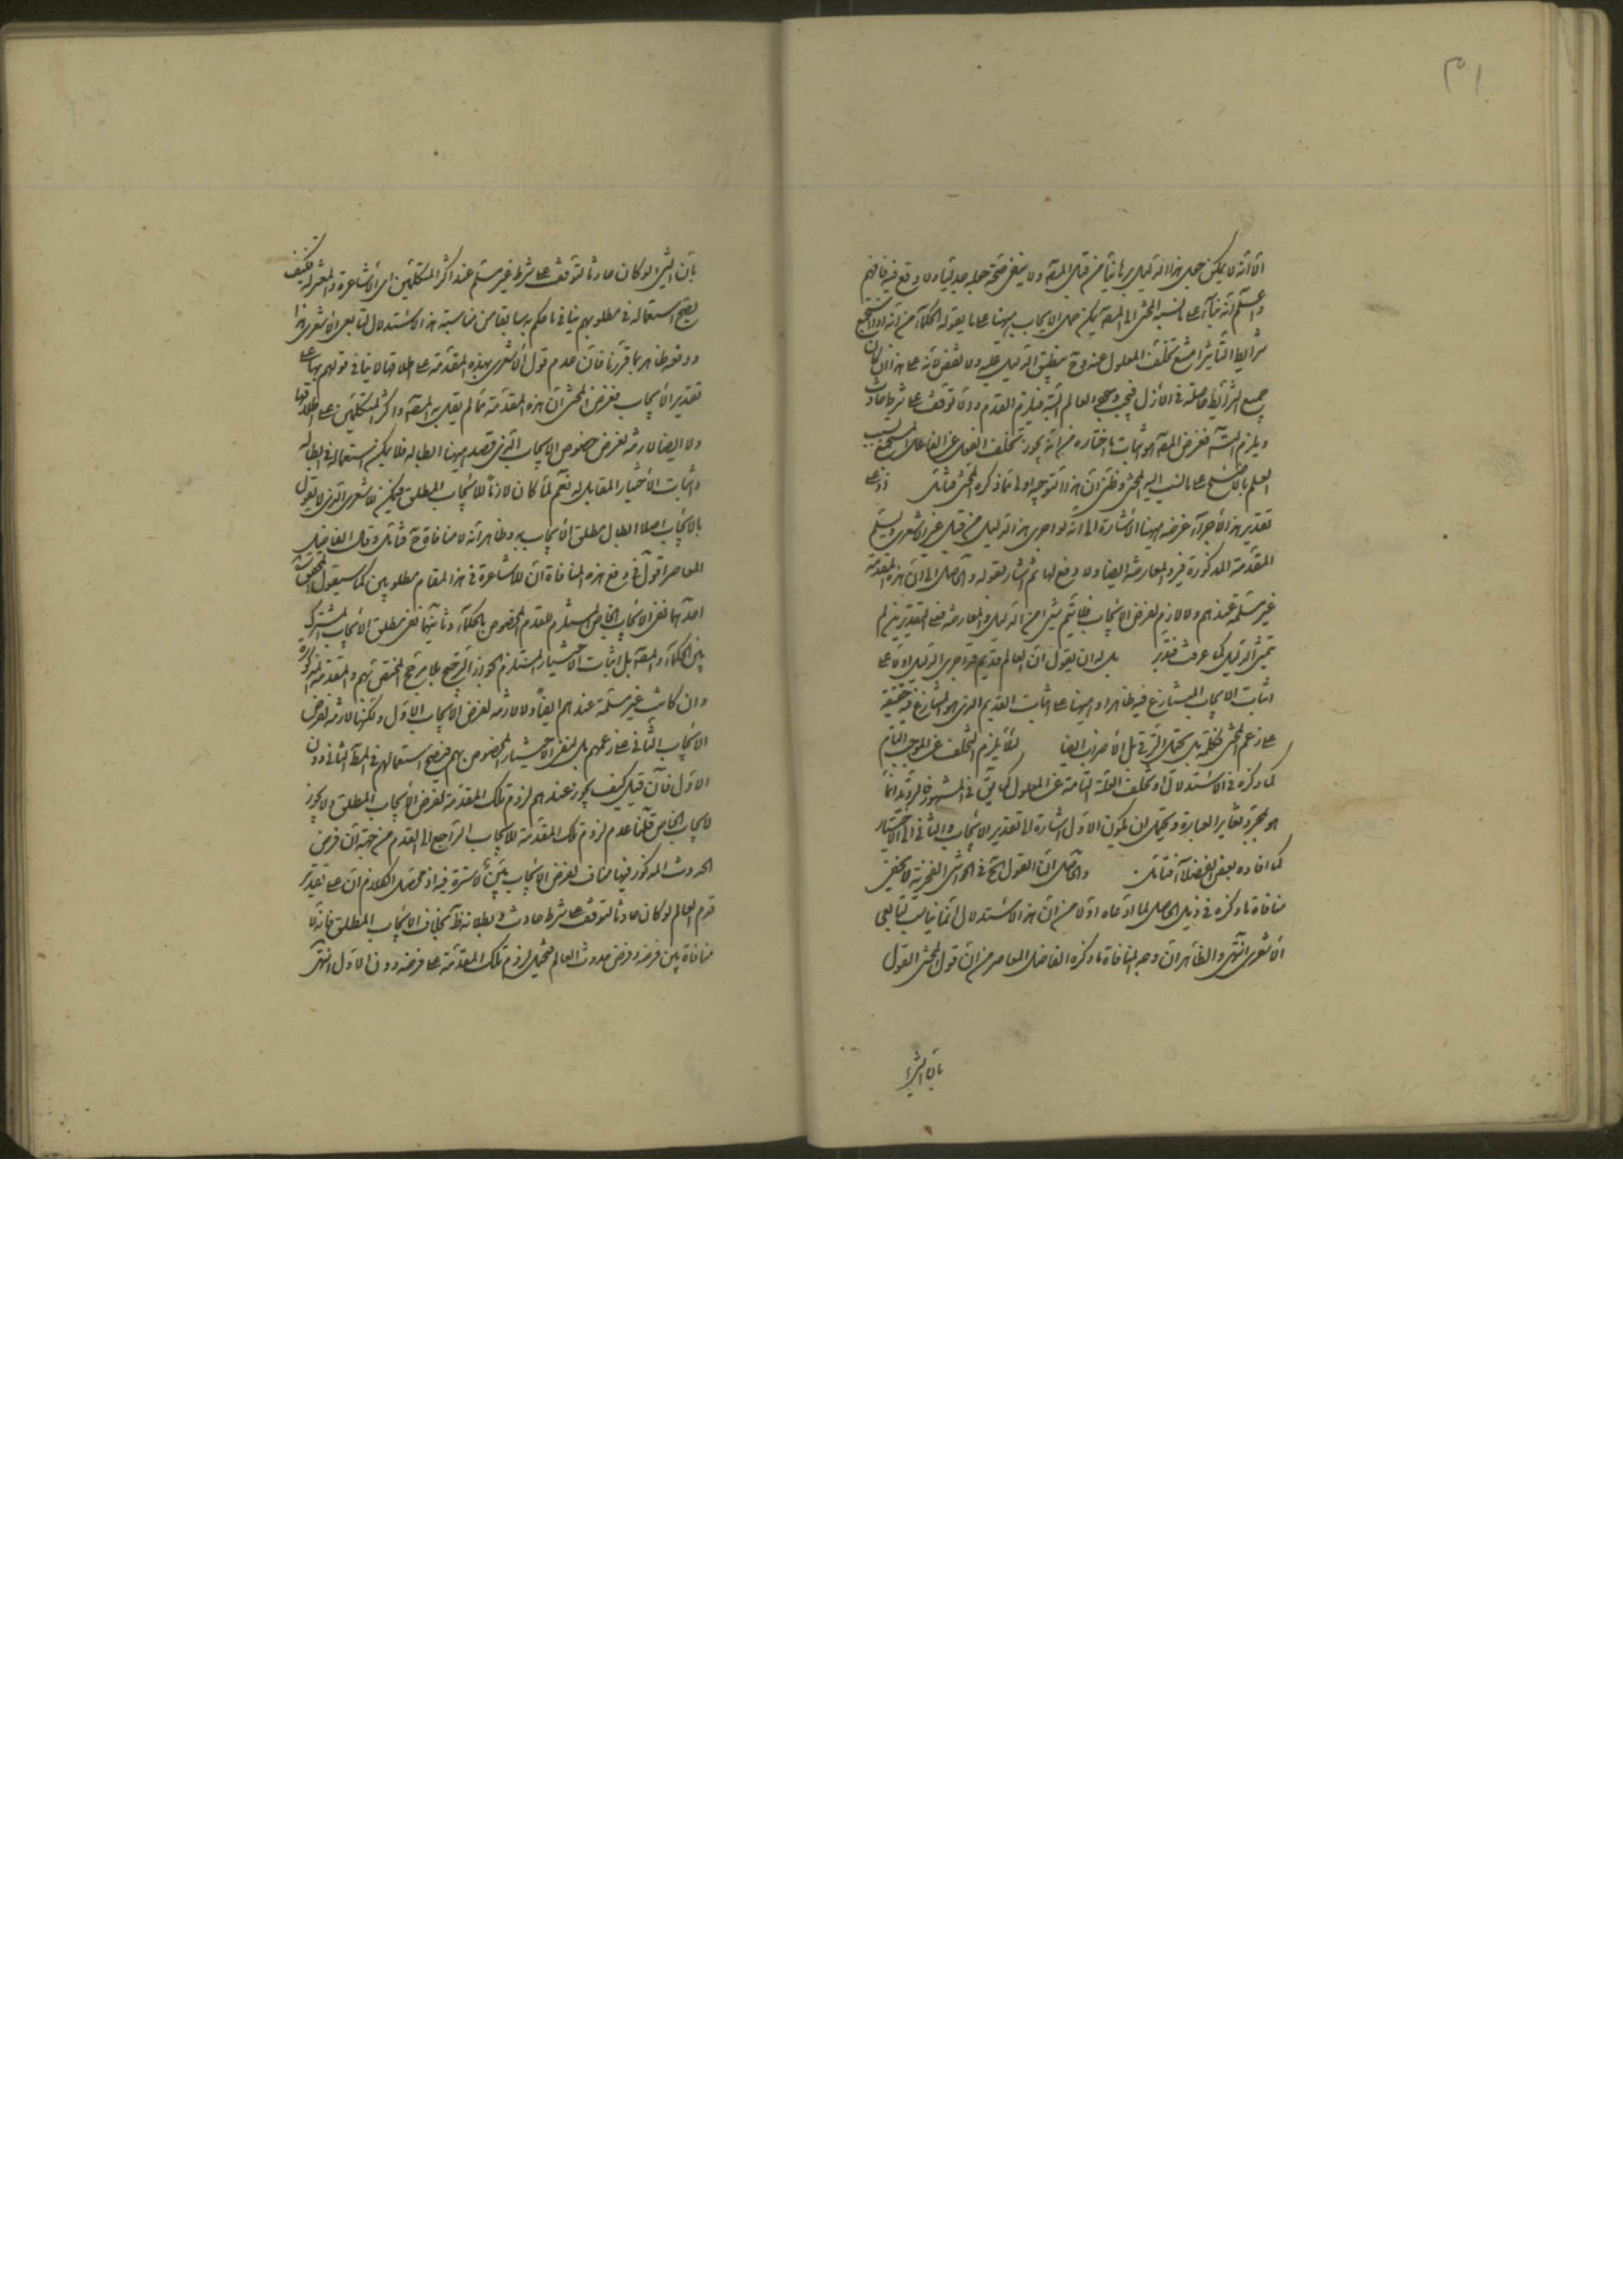 ٣١
الا انه لا يمكن جعل هذا الدليل برهانيا من قبل المصـ ولا ينبغي صحة جعله جدليا ولا دفع فيه فافهم
واعلم انه بناء على ما نسبه المحشى الى المصـ يمكن حمل الايجاب ههنا على ما يقوله الحكماء من انه اذا استجمع
شرايط التأثير امتنع تخلف المعلول عنه وح ينطبق الدليل عليه ولا نقض لانه على هذا ان كان
جميع الشرائط حاصلة في الازل فيجب وجود العالم البتة فيلزم القدم والا توقف على شرط حادث
ويلزم التسـ فغرض المصـ هو اثبات ما اختاره من انه يجوز تخلف الفعل عن الفاعل المستجمع بسبب
العلم بالاصلح على ما نسب اليه المحشى وظني ان هذا التوجيه اولى مما ذكره المحشى فتأمل
تقدير هذا الاجراء غرضه ههنا الاشارة الى انه لو اجرى هذا الدليل من قبل غير الاشعرى ويسلم
المقدمة المذكورة فيرد المعارضة ايضا ولا دفع لها ثم اشار بقوله والحاصل الى ان هذه المقدمة
غير مسلمة عندهم ولا لازم لفرض الايجاب فلا يتم شئ من الدليل والمعارضة فعلى التقديرين لم
يتميز الدليل كما عرفت فتدبر بل له ان يقول ان العالم قديم قد اجرى الدليل اولا على
اثبات الايجاب المتنازع فيه ظاهرا وههنا على اثبات القديم الذى هو المتنازع فيه حقيقة
على زعم المحشى فكلمة بل يحتمل الترقى بل الاضراب ايضا لئلا يلزم التخلف عن الموجب التام
كما ذكره في الاستدلال او تخلف العلة التامة عن المعلول كما يق في المشهور فالترديد انما
هو بمجرد تغاير العبارة ويحتمل ان يكون الاول اشارة الى تقدير الايجاب والثانى الى الاختيار
كما افاده بعض الفضلاء فتأمل والحاصل ان القول الخ في الحواشى الفخرية لا يخفى
منافاة ما ذكره في ذيل الحاصل لما ادعاه اولا من ان هذا الاستدلال انما يناسب لتابعى
الاشعرى انتهى والظاهر ان وجه المنافاة ما ذكره الفاضل المعاصر من ان قول المحشى القول
بان الشئ
بان الشئ لو كان حادثا لتوقف على شرط غير مسلم عند اكثر المتكلمين اى الاشاعرة والمعتزلة فكيف
يصح استعماله في مطلوبهم ينافى ما حكم به سابقا من مناسبة هذا الاستدلال لتابعى الاشعرى هذا
ودفعه ظاهر بما قررنا فان عدم قول الاشعرى بهذه المقدمة على اطلاقها لا ينافى قولهم بها على
تقدير الايجاب فغرض المحشى ان هذه المقدمة مما لم يقل به المصـ واكثر المتكلمين على اطلاقها
ولا ايضا لازمة لفرض خصوص الايجاب الذى قصد ههنا ابطاله فلا يمكن استعماله في ابطاله
واثبات الاختيار المقابل له نعم لما كان لازما للايجاب المطلق فيمكن للاشعرى الذى لا يقول
بالايجاب اصلا ابطال مطلق الايجاب به وظاهر انه لا منافاة ح فتأمل وقال الفاضل
المعاصر اقول في دفع هذه المنافاة ان للاشاعرة في هذا المقام مطلوبين كما سيقول المحقق
احدهما نفى الايجاب الخاص المستلزم للقدم المخصوص بالحكماء وثانيهما نفى مطلق الايجاب المشترك
بين الحكماء والمصـ بل اثبات الاختيار المستلزم لجواز الترجيح بلا مرجح المختص بهم والمقدمة المذكورة
وان كانت غير مسلمة عندهم ايضا ولا لازمة لفرض الايجاب الاول ولكنها لازمة لفرض
الايجاب الثانى على زعمهم بل لنفى الاختيار المخصوص بهم فيصح استعمالهم في المطـ الثانى دون
الاول فان قيل كيف يجوز عندهم لزوم تلك المقدمة لفرض الايجاب المطلق ولا يجوز
لايجاب الخاص قلنا عدم لزوم تلك المقدمة للايجاب الراجع الى القدم من جهة ان فرض
الحدوث المذكور فيها مناف لفرض الايجاب بين لا سترة فيه اذ محصل الكلام ان على تقدير
قدم العالم لو كان حادثا لتوقف على شرط حادث وبطلانه ظـ بخلاف الايجاب المطلق فانه لا
منافاة بين فرضه وفرض حدوث العالم فتخيل لزوم تلك المقدمة على فرضه دون الاول انتهى